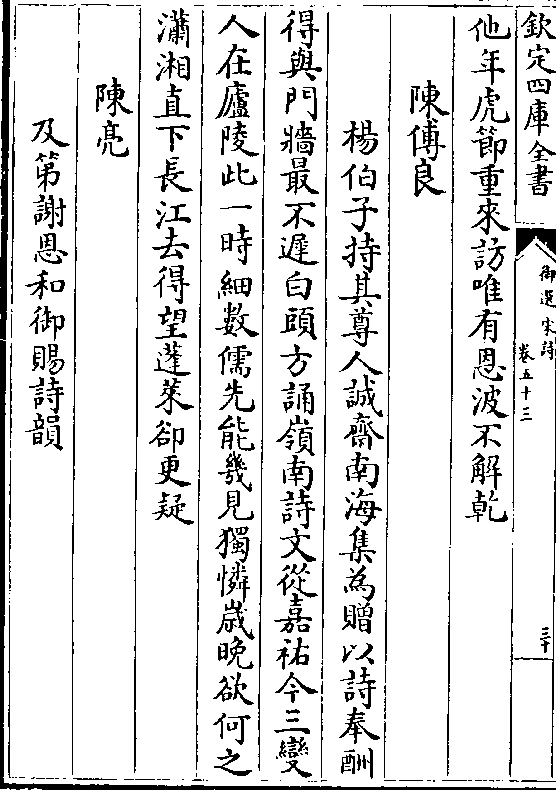 欽定四庫全書
御選宋詩
卷五十三
三十
他年虎節重來訪唯有恩波不解乾
陳傅良
楊伯子持其尊人誠齋南海集為贈以詩奉酬
得與門牆最不遲白頭方誦嶺南詩文從嘉祐今三變
人在廬陵此一時細數儒先能幾見獨憐歲晚欲何之
瀟湘直下長江去得望蓬萊卻更疑
陳亮
及第謝恩和御賜詩韻